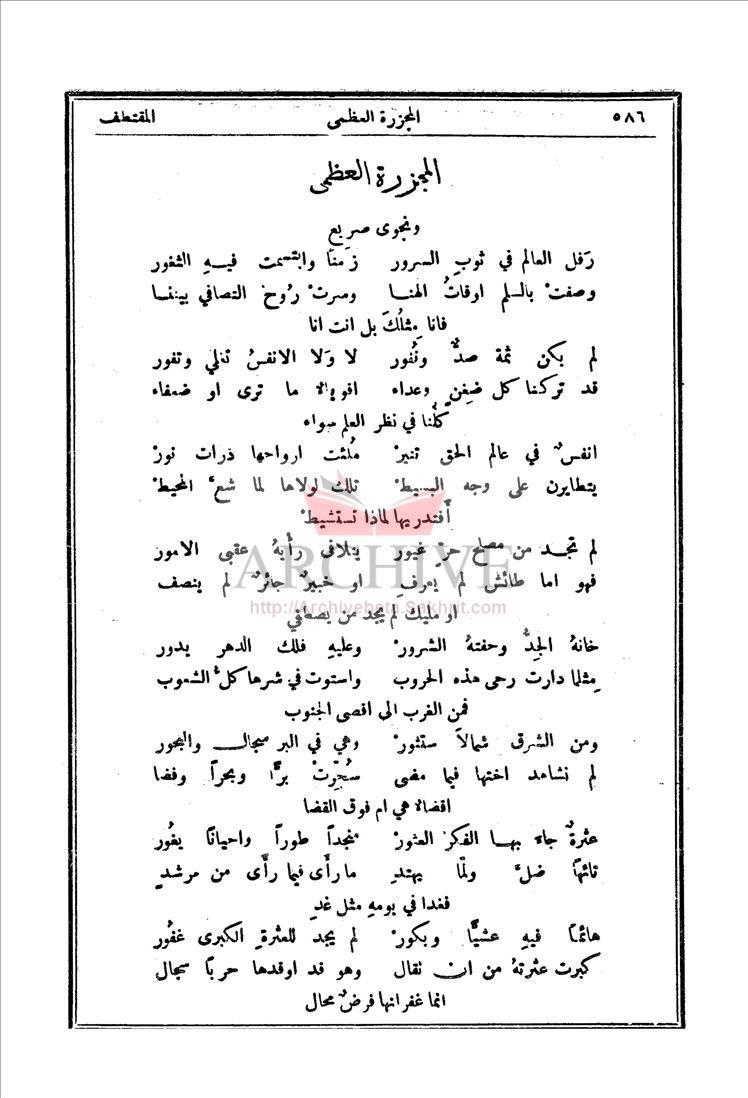 ٥٨٦ المجزرة العظمى المقتطف
المجزرة العظمى
ونجوى صريع
رَفل العالم في ثوبِ السرور زَمناً وابتسمت فيهِ الثغور
وصفتْ بالسلم اوقاتُ الهنا وسرتْ رُوحُ التصافي بيننا
فانا مِثلُكَ بل انت انا
لم يكن ثمة صدٌّ ونُفور لا وَلا الانفسُ تغلي وتفور
قد تركنا كل ضِغنٍ وعداء اقوياءُ ما ترى او ضعفاء
كلُّنا في نظر العلم سواء
انفسٌ في عالم الحق تنيرْ مُلئت ارواحها ذرات نورْ
يتطايرن على وجه البسيطْ تلك لولاها لما شعَّ المحيطْ
أَفتدريها لماذا تستشيطْ
لم تجد من مصلح حرّ غيور يتلافى رأيهُ عقبى الامور
فهو اما طائش لم يعرفِ او خبيرٌ جائرٌ لم ينصف
او مليك لم يجد من يصطفي
ARCHIVE
http://Archivebeta.Sakhrit.com
خانهُ الجِدُّ وحفتهُ الشرورْ وعليهِ فلك الدهر يدور
مِثلما دارت رحى هذه الحروب واستوت في شرها كلُّ الشعوب
فمن الغرب الى اقصى الجنوب
ومن الشرق شمالاً ستثورْ وهي في البر سجال والبحور
لم نشاهد اختها فيما مضى سُجِّرتْ برًّا وبحراً وفضا
اقضاءٌ هي ام فوق القضا
عثرةٌ جاءَ بهـا الفكرُ العثورْ منجداً طوراً واحيانًا يغُور
تائهًا ضلَّ ولمَّا يهتدِ ما رأى فيما رأَى من مرشدٍ
فغدا في يومهِ مثل غدِ
هائمًا فيهِ عشيًّا وبكورْ لم يجد للعثرةِ الكبرى غفُور
كبرت عثرتهُ من ان تقال وهو قد اوقدها حربًا سجال
انما غفرانها فرضٌ محال